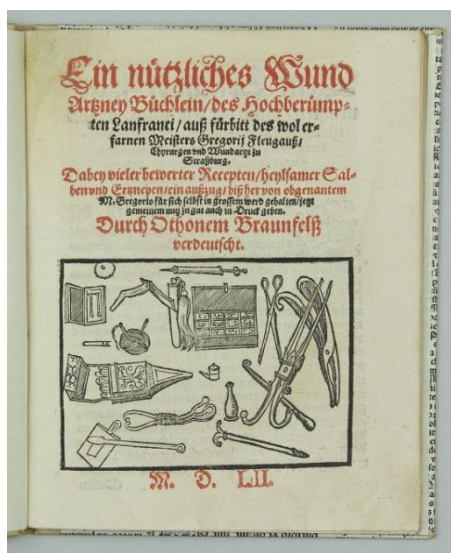 Ein nützliches Wund
Artzney Büchlein/des Hochberümp-
ten Lanfranci/auß fürbitt des wol er-
farnen Meisters Gregorij Fleugauß/
Chyrurgen vnd Wundartzt zu
Straßburg.
Dabey vieler bewerter Recepten/heylsamer Sal-
ben vnd Ertzneyen/ein außzug/biß her von obgenantem
M. Gregorio für sich selbst in grossem werd gehalten/jetzt
gemeinem nutz zu gut auch in Druck geben.
Durch Othonem Braunfelß
verdeutscht.
M. D. LII.